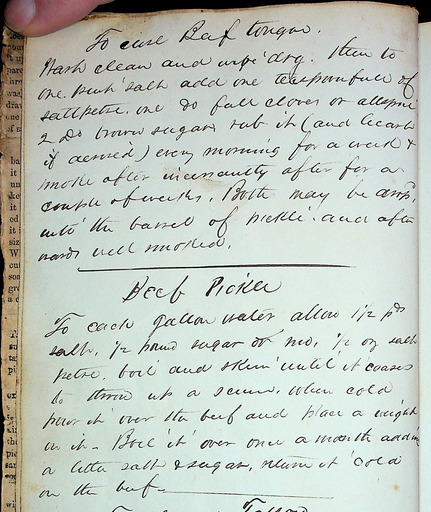 To cure Beef tongue.
Wash clean and wipe dry. then to
one pint salt add one teaspoonfull of
saltpetre. one do full cloves or allspice
2 do brown sugar rub it (and hearts
if desired) every morning for a week &
smoke after incessantly after for a
couple of weeks. Both may be
into the barrel of pickle and after
wards well smoked.
Beef Pickle
To each gallon water allow 1 1/2 pds
salt, 1/2 pound sugar or mo, 1/2 oz salt
petre. boil and skim until it ceases
to throw up a scum. when cold
pour it over the beef and place a weight
on it - Boil it over once a month adding
a little salt & sugar, return it cold
on the beef -